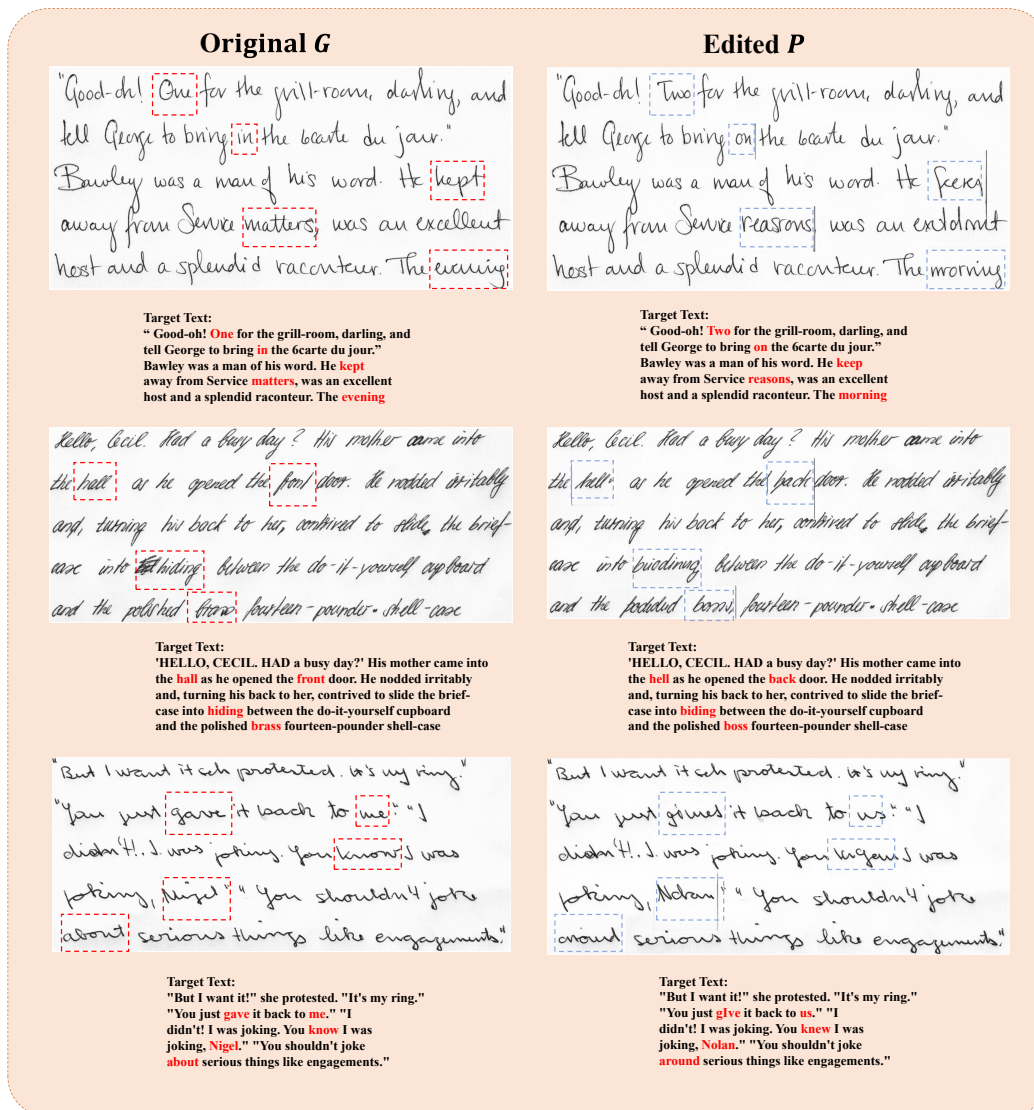 Original G
"Good-oh! One for the grill-room, darling, and
tell George to bring in the 6carte du jour."
Bawley was a man of his word. He kept
away from Service matters, was an excellent
host and a splendid raconteur. The evening
Target Text:
“ Good-oh! One for the grill-room, darling, and
tell George to bring in the 6carte du jour.”
Bawley was a man of his word. He kept
away from Service matters, was an excellent
host and a splendid raconteur. The evening
Hello, Cecil. Had a busy day? His mother came into
the hall as he opened the front door. He nodded irritably
and, turning his back to her, contrived to slide, the brief-
case into hiding between the do-it-yourself cupboard
and the polished brass fourteen-pounder shell-case
Target Text:
'HELLO, CECIL. HAD a busy day?' His mother came into
the hall as he opened the front door. He nodded irritably
and, turning his back to her, contrived to slide the brief-
case into hiding between the do-it-yourself cupboard
and the polished brass fourteen-pounder shell-case
"But I want it seh protested. It's my ring."
"You just gave it back to me." "I
didn't!. I was joking. You know I was
joking, Nigel" "You shouldn't joke
about serious things like engagements."
Target Text:
"But I want it!" she protested. "It's my ring."
"You just gave it back to me." "I
didn't! I was joking. You know I was
joking, Nigel." "You shouldn't joke
about serious things like engagements."
Edited P
"Good-oh! Two for the grill-room, darling, and
tell George to bring on the 6carte du jour."
Bawley was a man of his word. He
away from Service reasons was an
host and a splendid raconteur. The morning
Target Text:
“ Good-oh! Two for the grill-room, darling, and
tell George to bring on the 6carte du jour.”
Bawley was a man of his word. He keep
away from Service reasons, was an excellent
host and a splendid raconteur. The morning
Hello, Cecil. Had a busy day? His mother came into
the hell as he opened the pack door. He nodded irritably
and, turning his back to her, contrived to slide, the brief-
case into between the do-it-yourself cupboard
and the fourteen-pounder shell-case
Target Text:
'HELLO, CECIL. HAD a busy day?' His mother came into
the hell as he opened the back door. He nodded irritably
and, turning his back to her, contrived to slide the brief-
case into biding between the do-it-yourself cupboard
and the polished boss fourteen-pounder shell-case
"But I want it seh protested. It's my ring."
"You just it back to us." "I
didn't!. I was joking. You I was
joking, Nolan" "You shouldn't joke
around serious things like engagements."
Target Text:
"But I want it!" she protested. "It's my ring."
"You just gIve it back to us." "I
didn't! I was joking. You knew I was
joking, Nolan." "You shouldn't joke
around serious things like engagements."